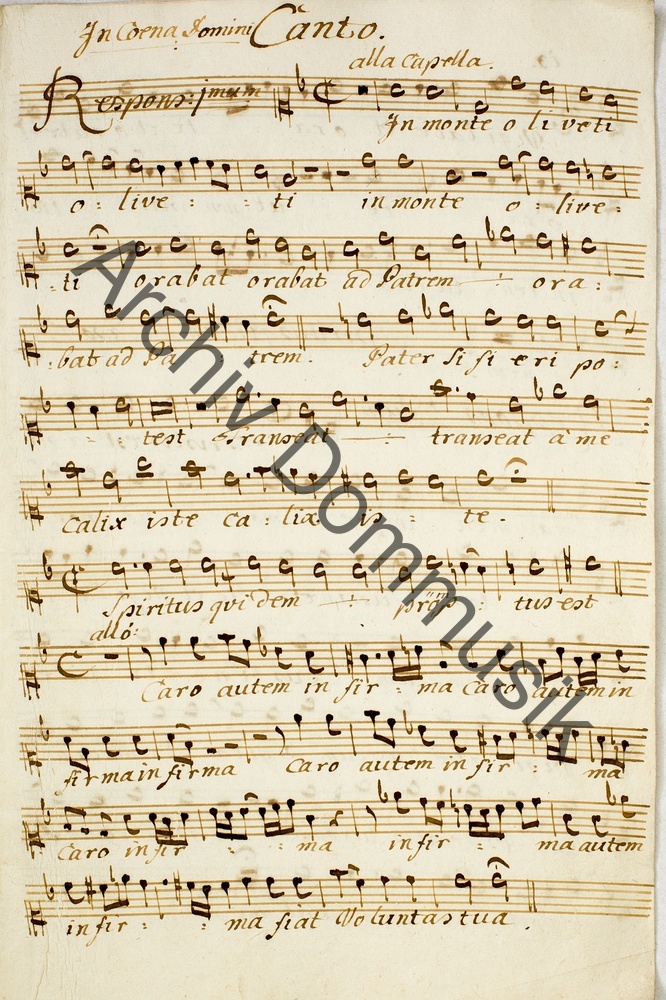 In Coena Domini Canto.
alla Capella.
Respons: jmum
In monte oliveti
o: live - : ti in monte o: live:
:ti orabat orabat ad Patrem ora:
:bat ad Pa trem. Pater si fieri po:
: test transeat transeat à me
Calix iste ca: lix is : te.
Spiritus qvidem promp: tus est
allô:
Caro autem in fir: ma Caro autem in
firma in firma Caro autem in fir: ma
Caro infir : : ma infir : ma autem
infir: : ma fiat Voluntas tua.
Archiv Dommusik